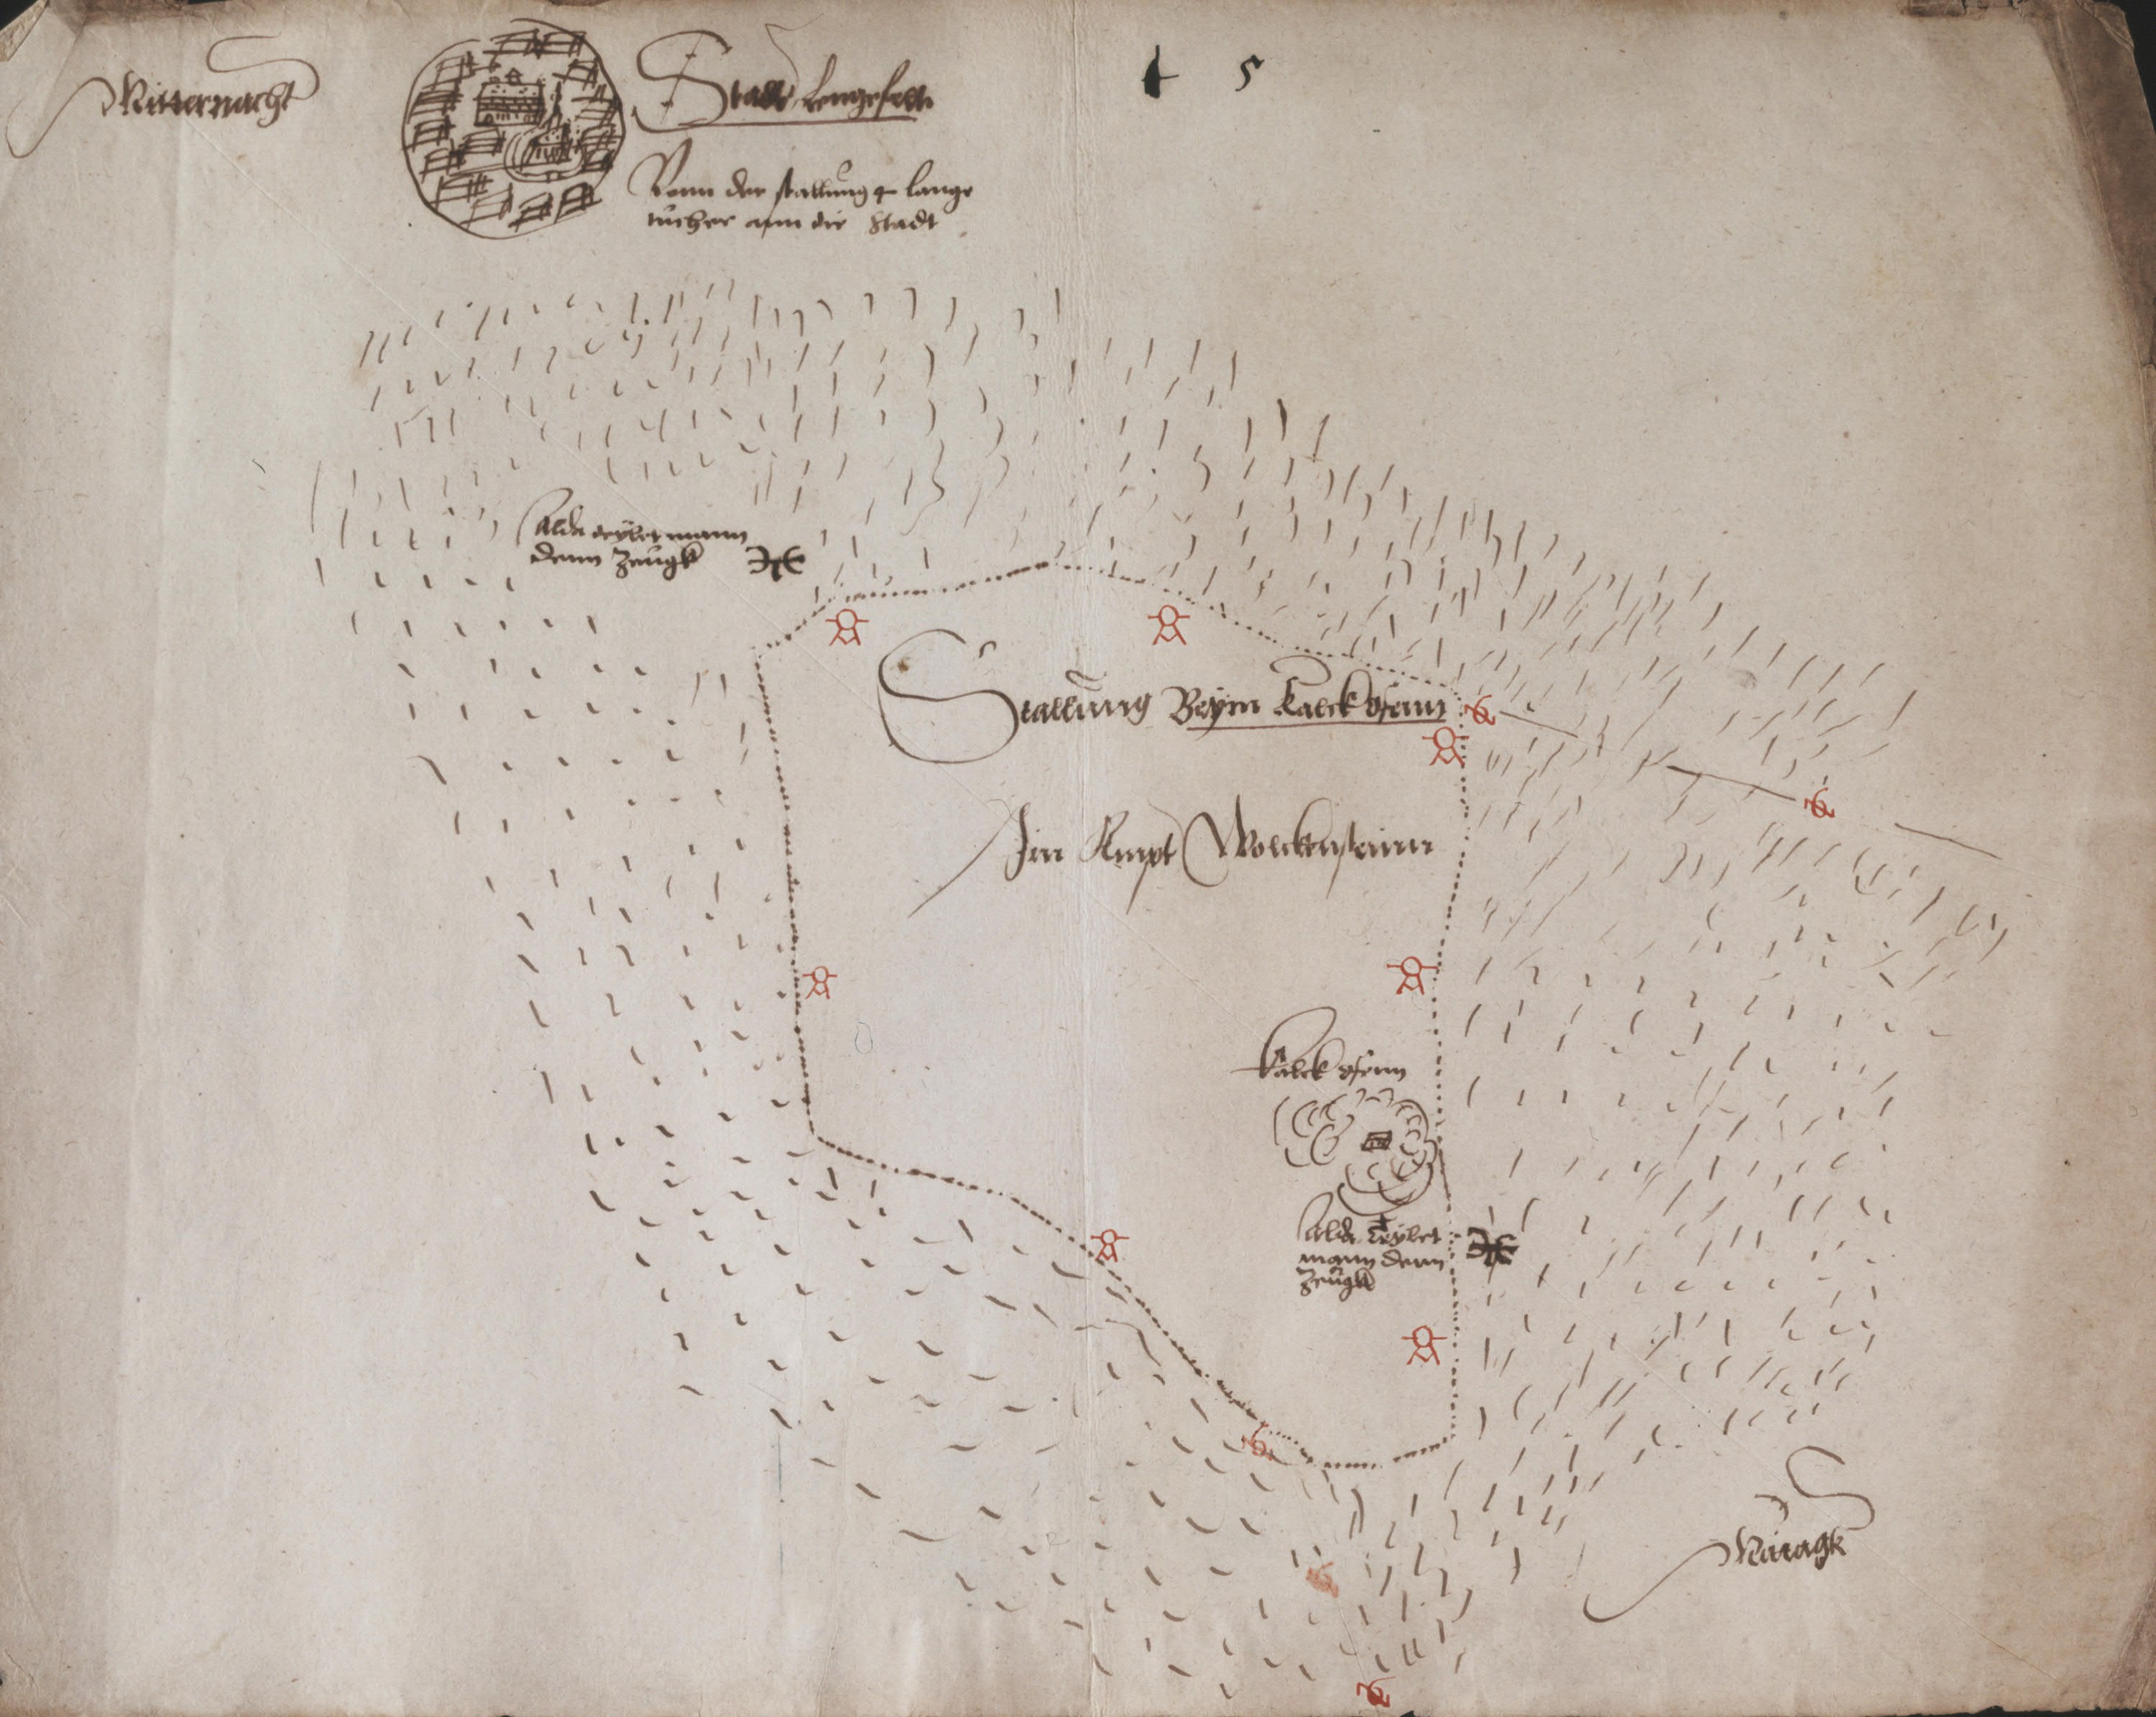 Mitternacht
Stadt Lengefelt
Vonn der stallung 4 lange
tucher ann die Stadt
5
Alda treybet mann
denn Zeugk
Stallung Beym Kalckofenn
Im Ampt Wolckensteinn
Kalckofenn
Alda treybet
mann denn
Zeugk
Mitagk